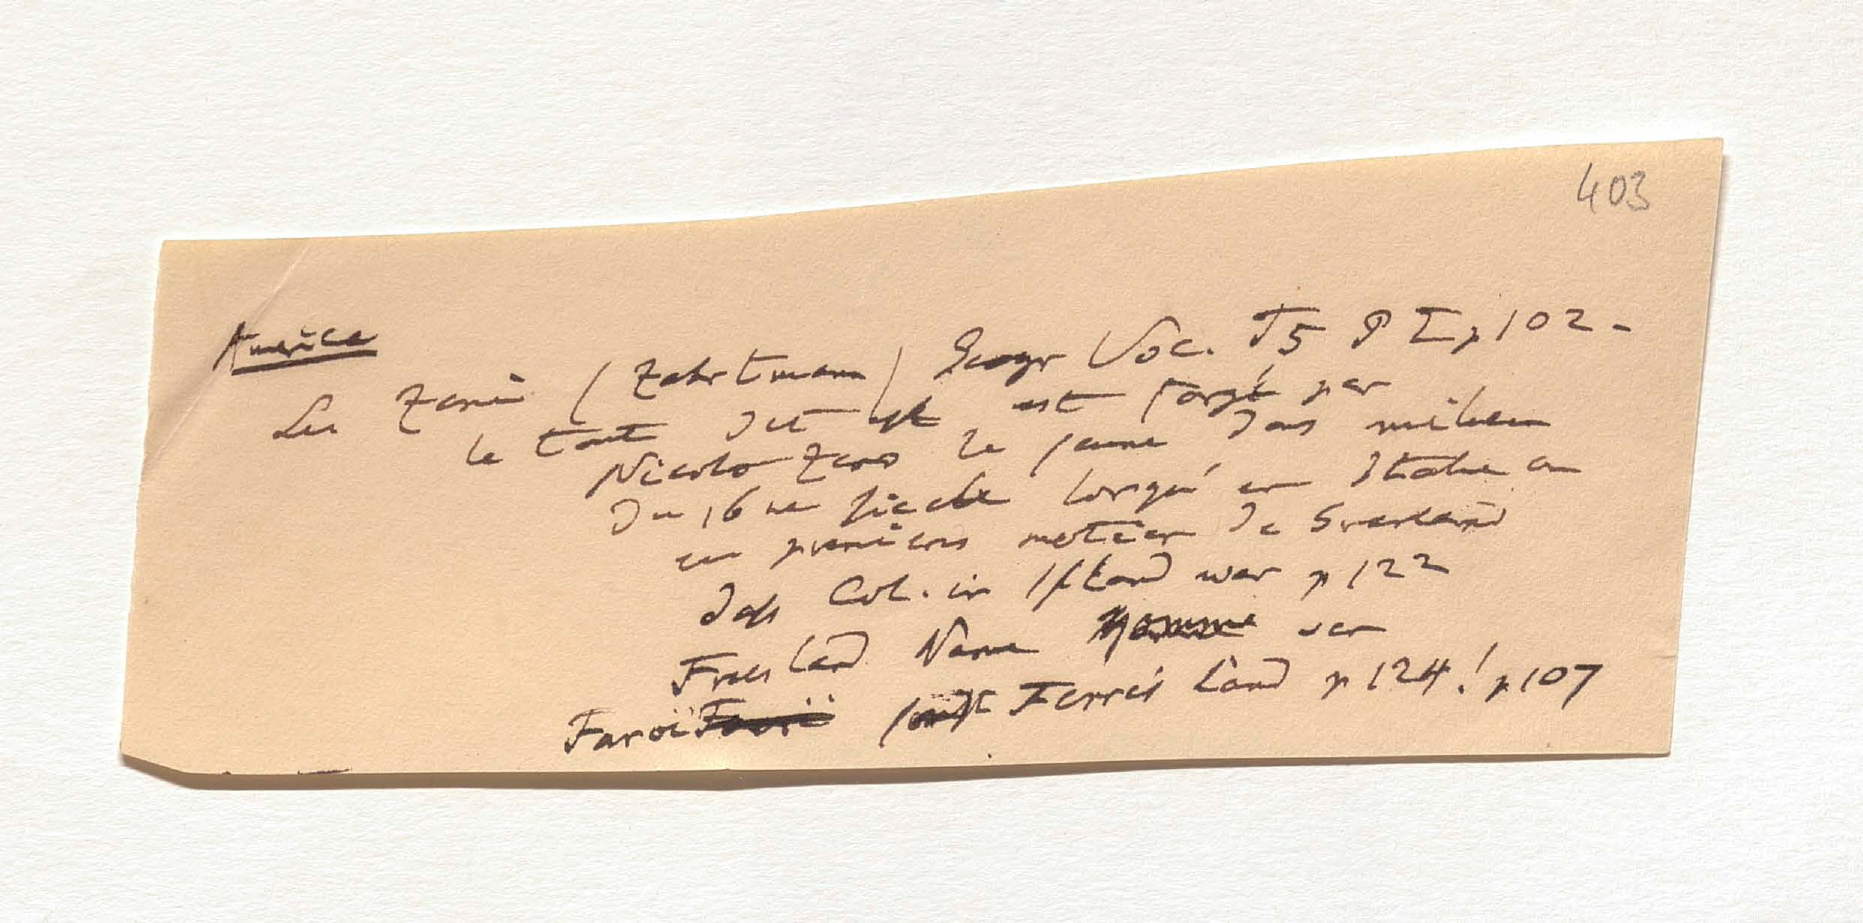 403
America
Les Zeni (Zahrtmann) Geogr Soc. T5 P I p 102-
le tout est forgé par
Nicolo Zeno le jeune dans milieu
du 16me siecle lorsqu' en Italie on
eu premieres notices de Groenland
dass Col. in Island war p 122
Friesland Name war
Faroi Ferris Land p 124! p 107